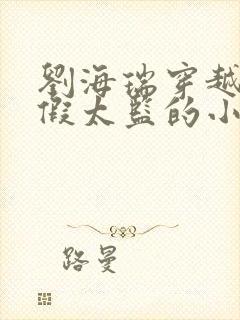 劉海瑞穿越
假太監的小
路曼